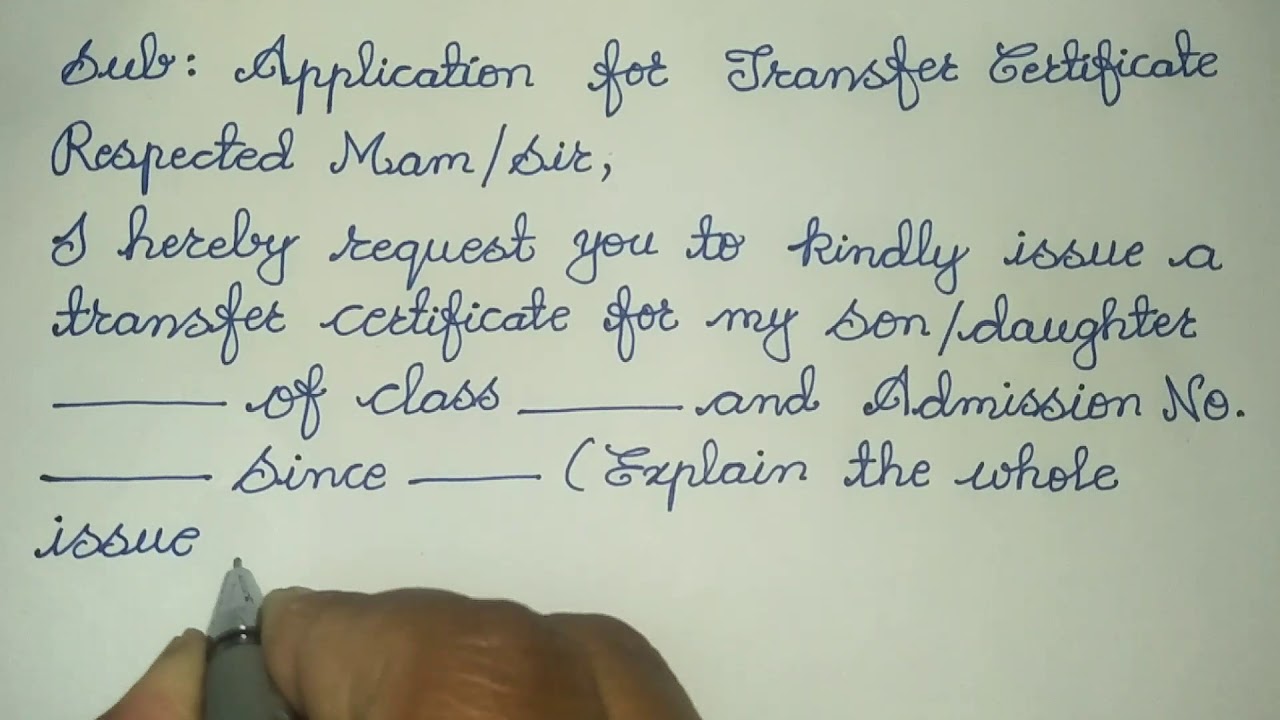 Sub: Application for Transfer Certificate
Respected Mam/Sir,
I hereby request you to kindly issue a
transfer certificate for my son/daughter
_____ of class _____ and Admission No.
_____ since _____ (Explain the whole
issue